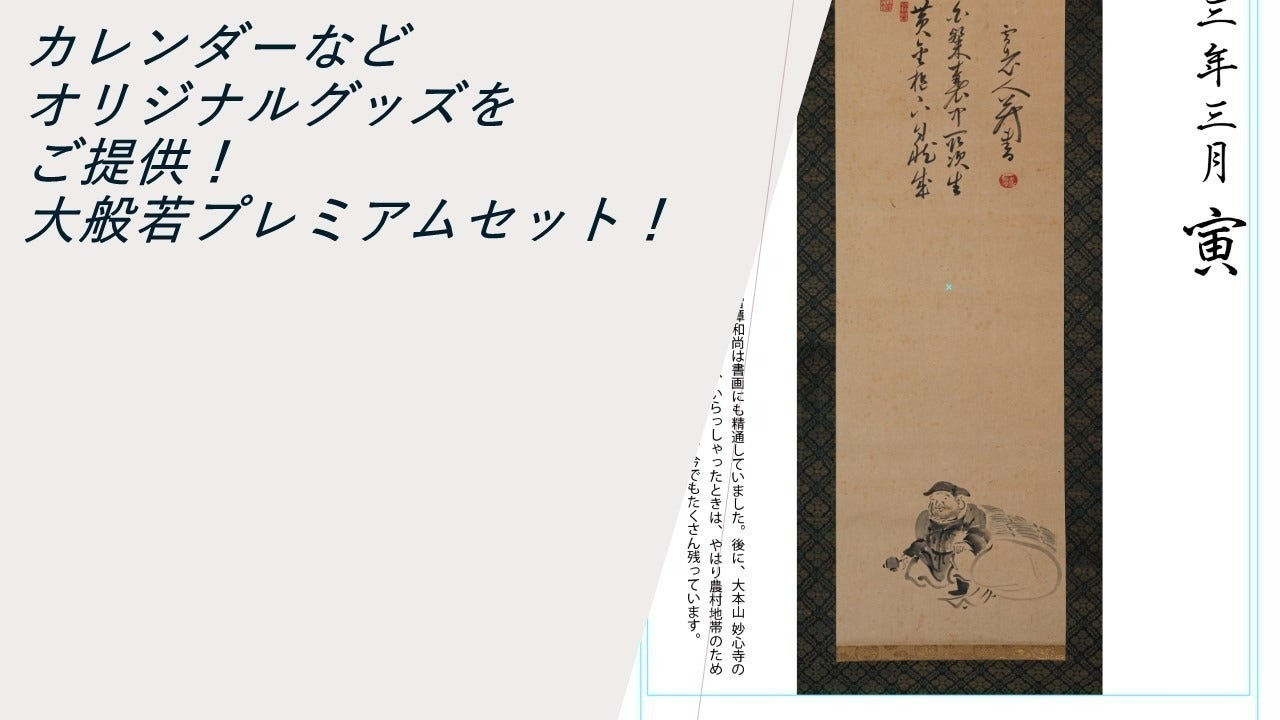 カレンダーなど
オリジナルグッズを
ご提供！
大般若プレミアムセット！
三年三月 寅
和尚は書画にも精通していました。後に、大本山妙心寺の
いらっしゃったときは、やはり農村地帯のため
今でもたくさん残っています。